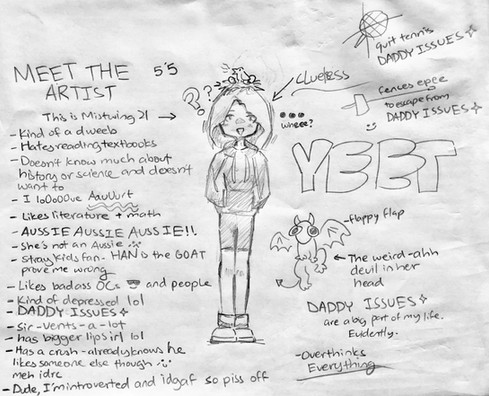 MEET THE
ARTIST
5'5
This is Mistwing21
- Kind of a dweeb
- Hates reading textbooks
- Doesn't know much about
history or science and doesn't
want to
- I loOoOOve AauUurt
- Likes literature + math
- AUSSIE AUSSIE AUSSIE!!
- She's not an Aussie
- stray kids fan - HAN is the GOAT
prove me wrong
- Likes badass OCs and people
- Kind of depressed lol
- DADDY ISSUES
- Sir-vents-a-lot
- has bigger lips irl lol
- Has a crush - already knows he
likes someone else though :
meh idrc
- Dude, I'm introverted and idgaf so piss off
???
CLUELESS
wheee?
quit tennis
DADDY ISSUES
fences epee
to escape from
DADDY ISSUES
YEET
- floppy flap
The weird-ahh
devil in her
head
DADDY ISSUES
are a big part of my life.
Evidently.
- Overthinks
Everything